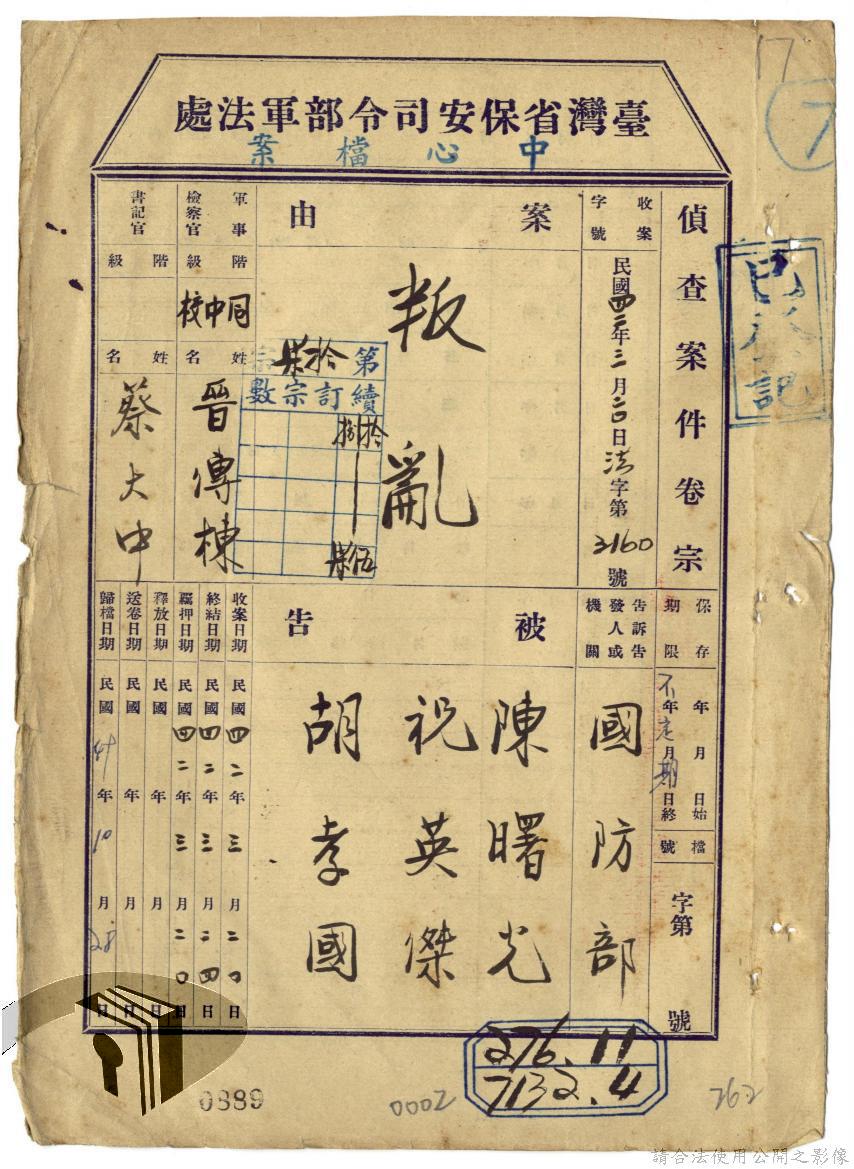 17
7
臺灣省保安司令部軍法處
中心檔案
偵查案件卷宗
收案字號
民國四二年三月二〇日法字第3160號
案由
叛亂
軍事檢察官
階級
同中校
姓名
晉傳棟
書記官
階級
姓名
蔡大中
第拾柒宗
續訂宗數
保存期限
年月日始
年月日終
不定期
檔號
字第號
告訴告發人或機關
國防部
被告
陳曙光
祝英傑
胡孝國
收案日期 民國四二年三月二〇日
終結日期 民國四二年三月二四日
羈押日期 民國四二年三月二〇日
釋放日期 民國 年 月 日
送卷日期 民國 年 月 日
歸檔日期 民國 47年10月28日
276.11
7132.4
0889
0002
262
請合法使用公開之影像